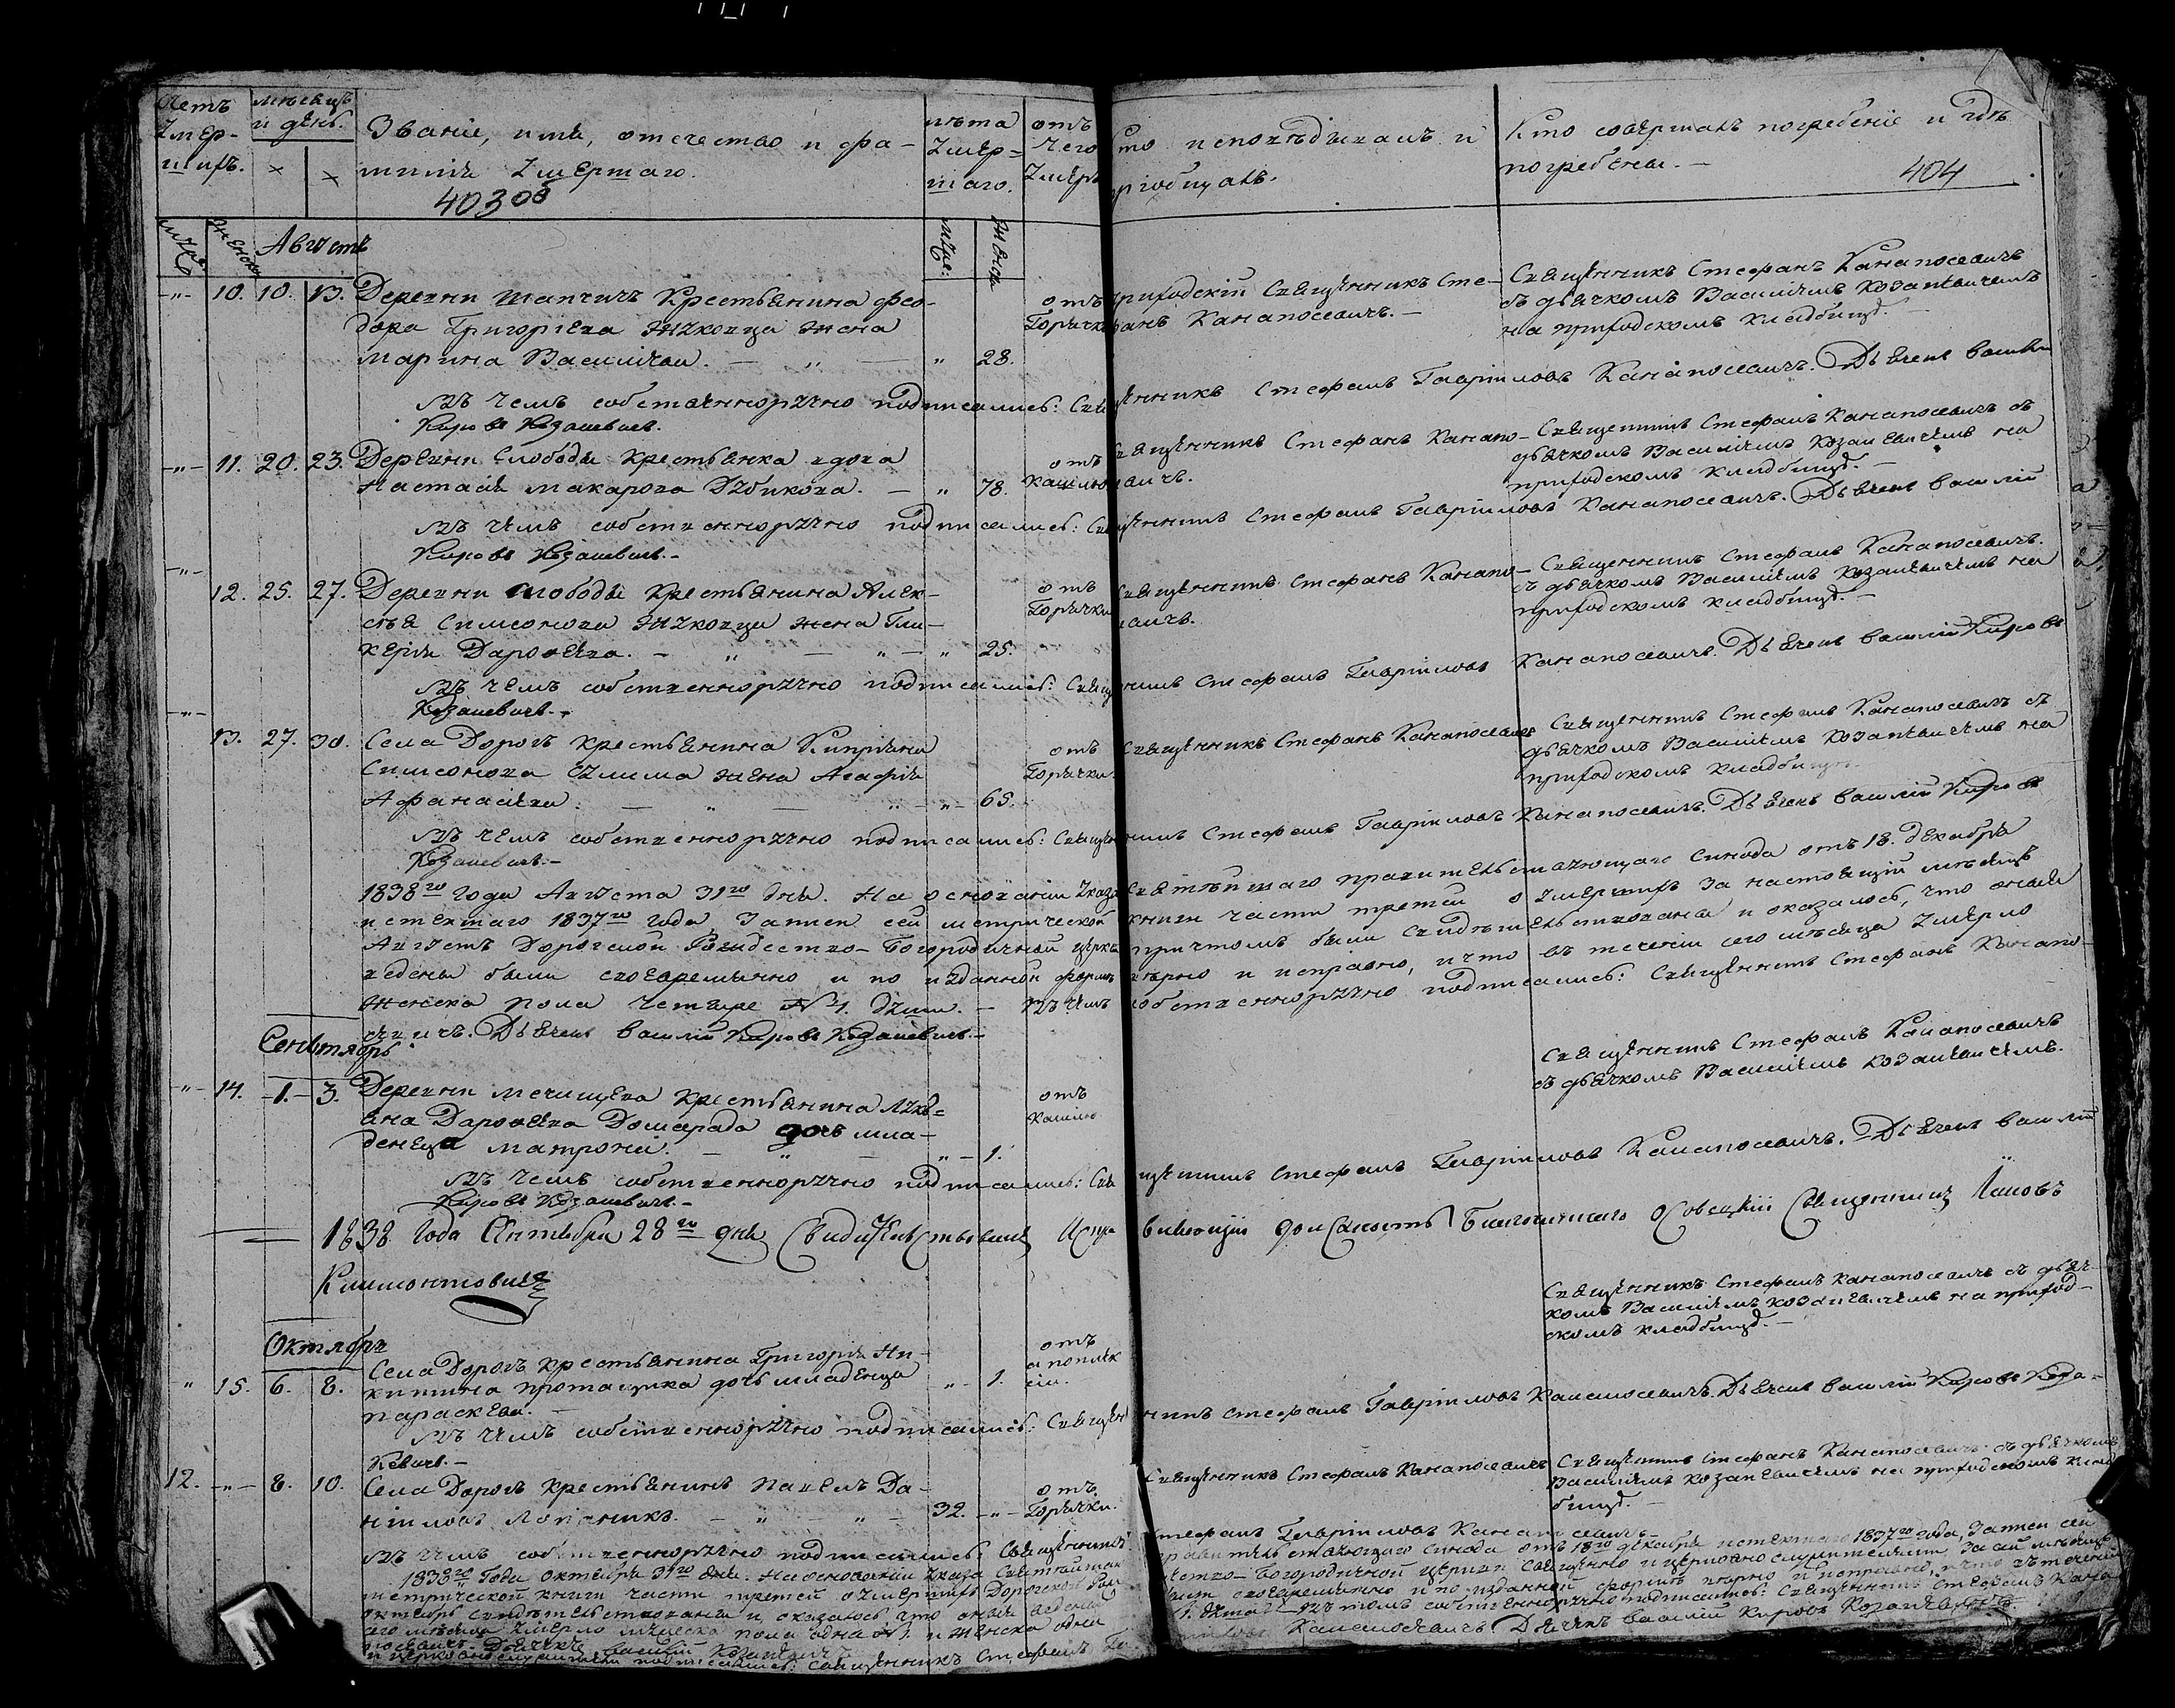 Счетъ умер-шихъ.
мѣсяцъ и день.
Званіе, имя, отечество и фа-
милія умершаго.
403 об
лѣта умер=шаго.
отъ чего умеръ
Кто исповѣдывалъ и
пріобщалъ.
Кто совершалъ погребеніе и гдѣ
погребены. —
404
муж. женск.
Августъ
муж: женск
-"- 10. 10. 13. Деревни Шапчичъ крестьянина Фео-
дора Григоріева Жуковца жена
Марина Васильева. — " — " 28.
отъ
Горячки
Приходскій Священникъ Сте-
фанъ Канапосевичъ. —
Священникъ Стефанъ Канапосевичъ
съ дьячкомъ Василіемъ Козакевичемъ
на приходскомъ кладбищѣ. —
Въ чемъ собственноручно подписались: Священникъ Стефанъ Гавріиловъ Канапосевичъ. Дьячекъ Василій
Кировъ Козакевичъ.
-"- 11. 20. 23. Деревни Слободы крестьянка вдова
Настасія Макарова Дубикова. — " 78.
отъ
кашлю
Священникъ Стефанъ Канапо-
севичъ.
Священникъ Стефанъ Канапосевичъ съ
дьячкомъ Василіемъ Козакевичемъ на
приходскомъ кладбищѣ. —
Въ чемъ собственноручно подписались: Священникъ Стефанъ Гавріиловъ Канапосевичъ. Дьячекъ Василій
Кировъ Козакевичъ. -
-"-
12. 25. 27. Деревни Слободы крестьянина Алек-
сѣя Симеонова Жуковца жена Гли-
керія Дароѳеева. — " — " — " 25.
отъ
Горячки
Священникъ Стефанъ Канапо-
севичъ.
Священникъ Стефанъ Канапосевичъ
съ дьячкомъ Василіемъ Козакевичемъ на
приходскомъ кладбищѣ. —
Въ чемъ собственноручно подписались: Священникъ Стефанъ Гавріиловъ Канапосевичъ. Дьячекъ Василій Кировъ
Козакевичъ. -
-"-
13. 27. 30. Села Дорогъ крестьянина Кипріяна
Симеонова жена Агафія
Афанасіева. — " — " -"- 65.
отъ
Горячки.
Священникъ Стефанъ Канапосевичъ
Священникъ Стефанъ Канапосевичъ съ
дьячкомъ Василіемъ Козакевичемъ на
приходскомъ кладбищѣ.
Въ чемъ собственноручно подписались: Священникъ Стефанъ Гавріиловъ Канапосевичъ. Дьячекъ Василій Кировъ
Козакевичъ. -
1838го года Августа 31го дня. На основаніи указа Святѣйшаго правительствующаго Синода отъ 18. декабря
истекшаго 1837го года, Записи сей метрической книги части третей о умершихъ за настоящій мѣсяцъ
Августъ Дорогской Рождество-Богородичной церкви причтомъ были свидѣтельствованы и оказалось, что оныя
ведены были своевременно и по изданной формѣ вѣрно и исправно, и что въ теченіи сего мѣсяца умерло
женска пола четыре № 4. души. — Въ чемъ собственноручно подписались: Священникъ Стефанъ Канапо-
севичъ. Дьячекъ Василій Кировъ Козакевичъ. -
Сентябрь
"- 14. -1.- 3. Деревни Мечищева крестьянина Лукь=
яна Дароѳеева Домарада дочь мла-
денеца Матроніи. — " — "- 1.
отъ
кашлю
Священникъ Стефанъ Канапосевичъ
съ дьячкомъ Василіемъ Козакевичемъ.
Въ чемъ собственноручно подписались: Священникъ Стефанъ Гавріиловъ Канапосевичъ. Дьячекъ Василій
Кировъ Козакевичъ. -
1838 года Сентября 28го дня Свидѣтельствовалъ Исправляющій должность Благочиннаго Осовецкій Священникъ
Климонтовичъ
Октябрь
" 15. 6. 8. Села Дорогъ крестьянина Григорія Ни-
китина дочь младенца
Параскева. — "- 1.
отъ
апоплек
сіи.
Священникъ Стефанъ Канапосевичъ съ дьяч-
комъ Василіемъ Козакевичемъ на приход-
скомъ кладбищѣ. —
Въ чемъ собственноручно подписались: Священникъ Стефанъ Гавріиловъ Канапосевичъ. Дьячекъ Василій Кировъ Коза-
кевичъ. -
12. -"- 8. 10. Села Дорогъ крестьянинъ Павелъ Да-
ніиловъ — " — " — 32. -"-
отъ
Горячки.
Священникъ Стефанъ Канапосевичъ
Священникъ Стефанъ Канапосевичъ съ дьячкомъ
Василіемъ Козакевичемъ на приходскомъ клад
бищѣ. —
Въ чемъ собственноручно подписались Священникъ Стефанъ Гавріиловъ Канапосевичъ
1838го Года Октября 31го дня. На основаніи указа Святѣйшаго правительствующаго Синода отъ 18го декабря истекшаго 1837го года, Записи сей
метрической книги части третей о умершихъ Дорогской Рождество-Богородичной церкви
октябрь свидѣтельствованы и оказалось, что оныя ведены были своевременно и по изданной формѣ вѣрно и исправно, и что въ теченіи
сего мѣсяца умерло мужеска пола одна № 1. и женска одна № 1. душа. Въ чемъ собственноручно подписались: Священникъ Стефанъ Кана
посевичъ. Дьячекъ Василій Козакевичъ
подписались: Священникъ Стефанъ Гавріиловъ Канапосевичъ Дьячекъ Василій Кировъ Козакевичъ.